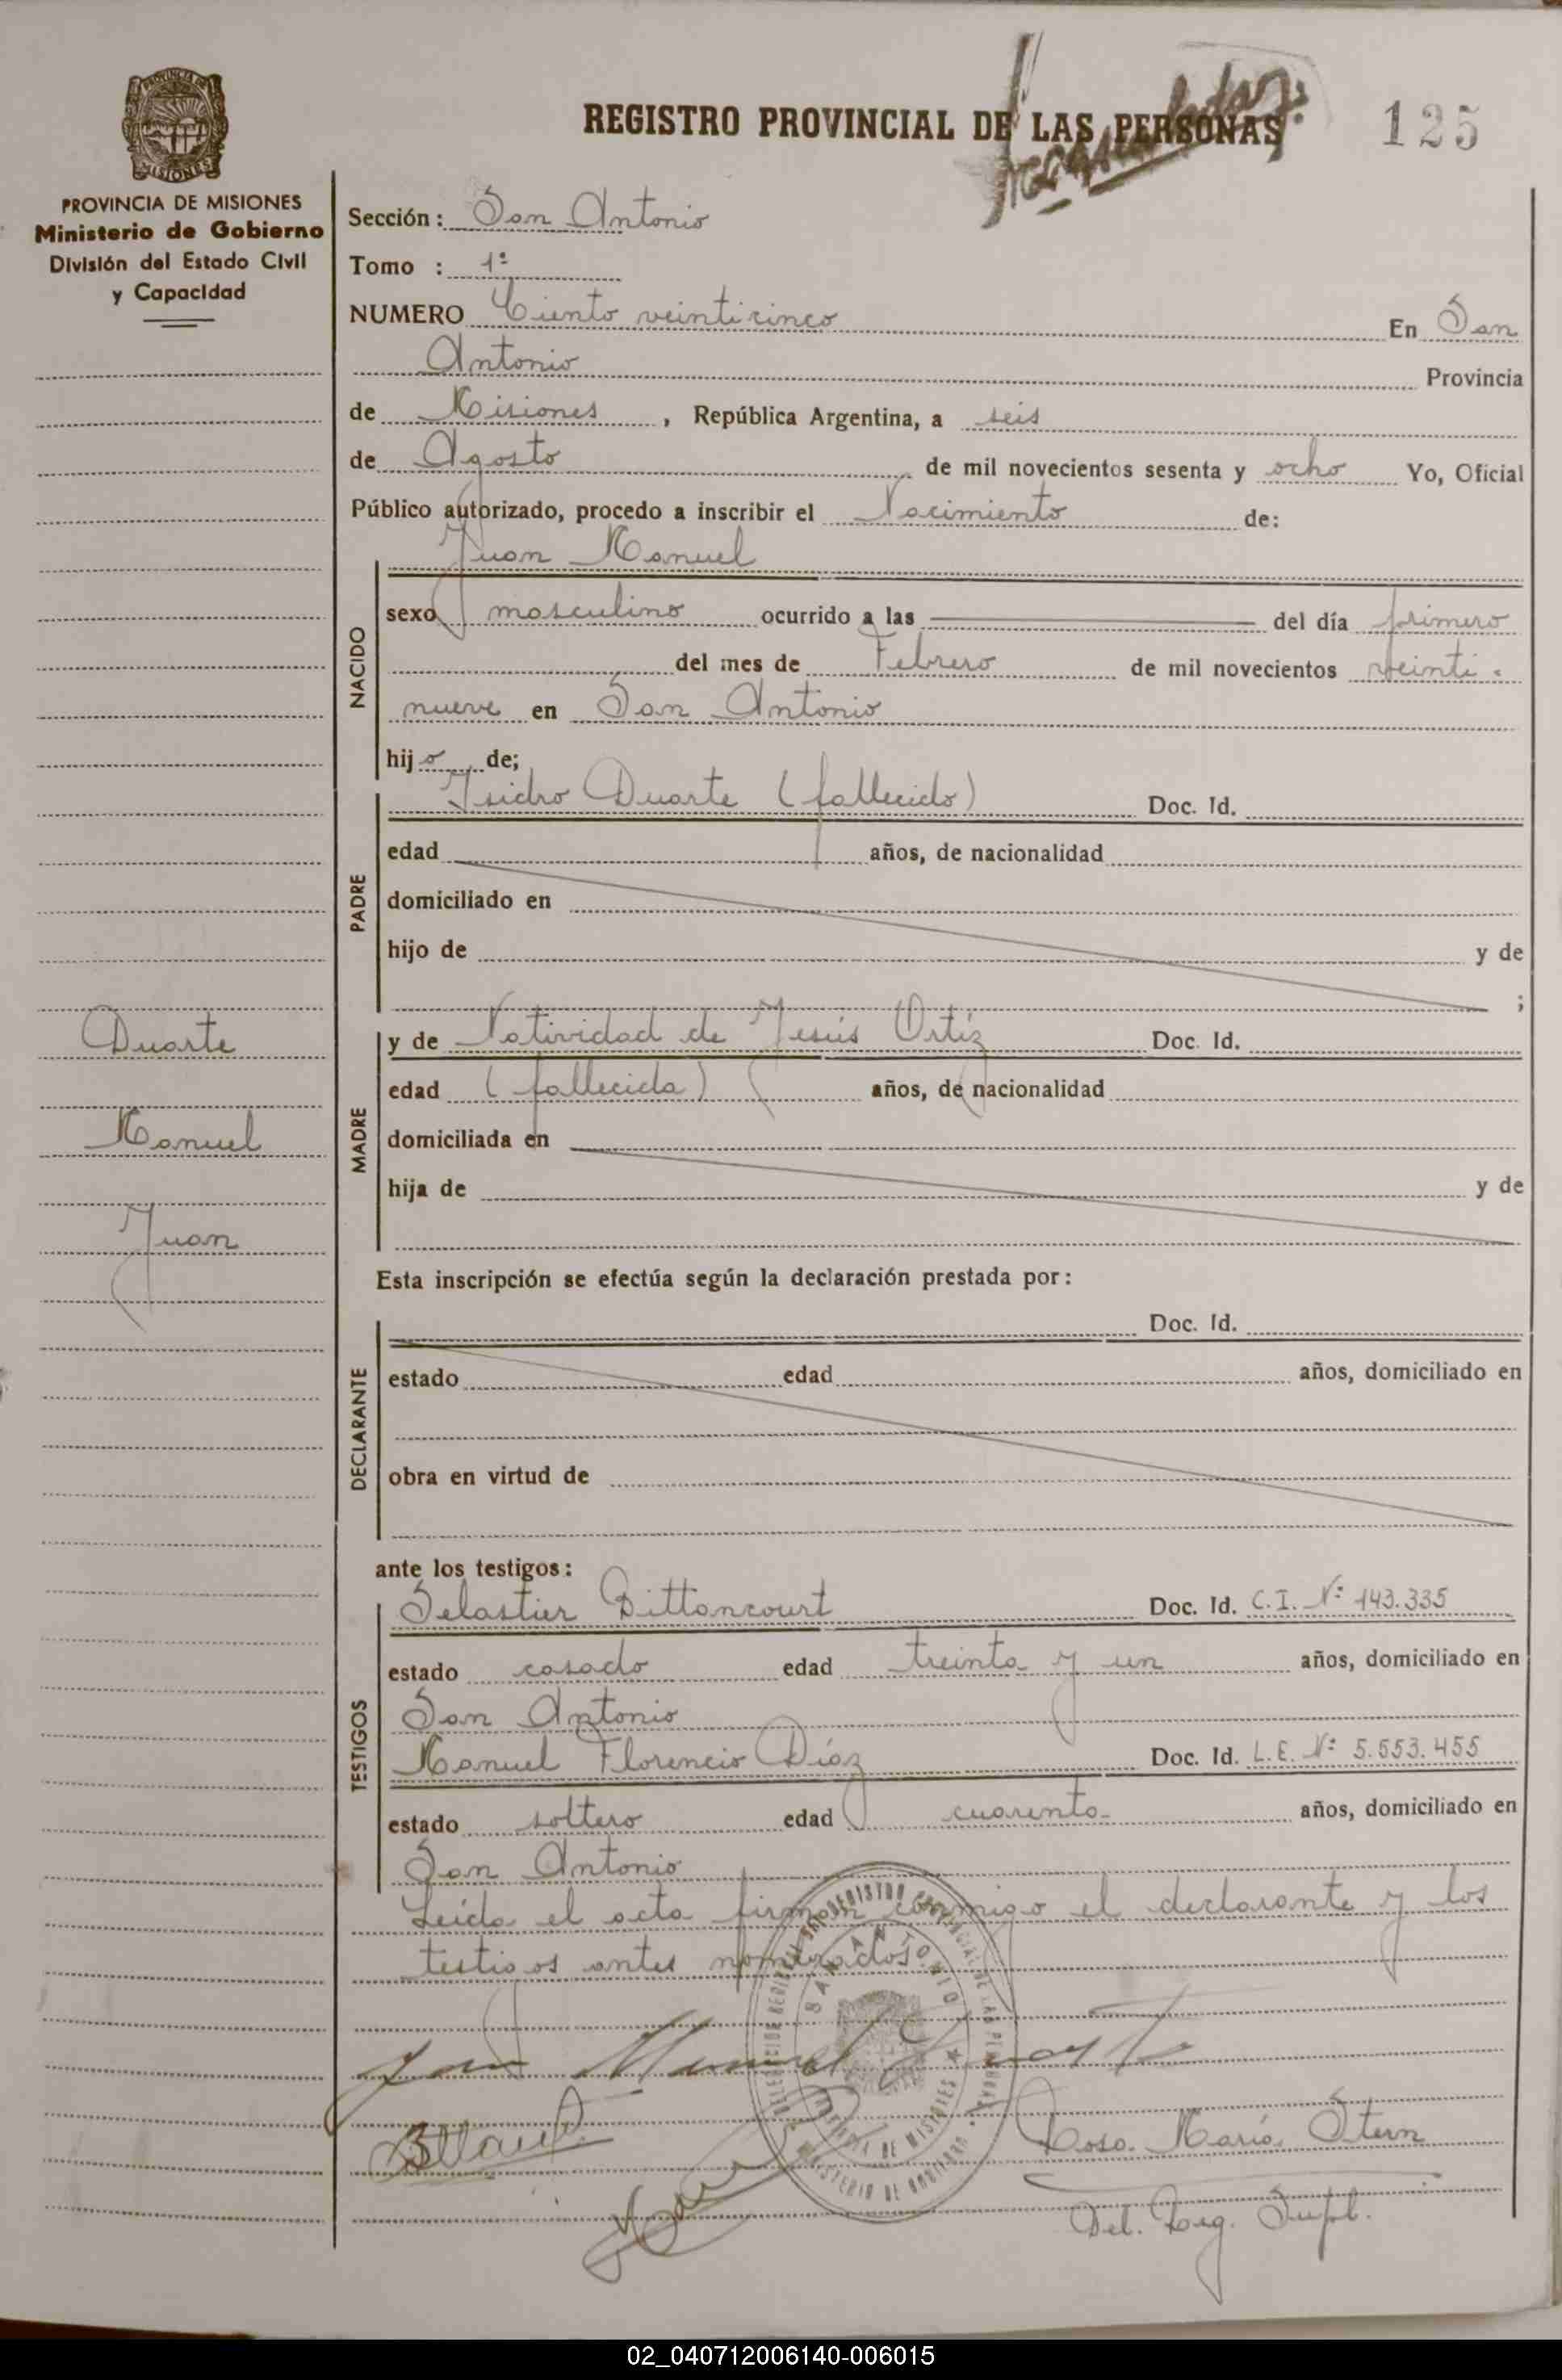 REGISTRO PROVINCIAL DE LAS PERSONAS
125
MISIONES
PROVINCIA DE MISIONES
Ministerio de Gobierno
División del Estado Civil
y Capacidad
Sección: San Antonio
Tomo : 1º
NUMERO Ciento veinticinco En San
Antonio Provincia
de Misiones, República Argentina, a seis
de Agosto de mil novecientos sesenta y ocho Yo, Oficial
Público autorizado, procedo a inscribir el Nacimiento de:
Juan Manuel
NACIDO
sexo masculino ocurrido a las del día primero
del mes de Febrero de mil novecientos veinti-
nueve en San Antonio
hijo de;
PADRE
Isidro Duarte (fallecido) Doc. Id.
edad años, de nacionalidad
domiciliado en
hijo de y de
;
MADRE
y de Natividad de Jesús Ortíz Doc. Id.
edad (fallecida) años, de nacionalidad
domiciliada en
hija de y de
Duarte
Manuel
Juan
Esta inscripción se efectúa según la declaración prestada por:
DECLARANTE
Doc. Id.
estado edad años, domiciliado en
obra en virtud de
ante los testigos:
TESTIGOS
Bittancourt Doc. Id. C.I. Nº 143.335
estado casado edad treinta y un años, domiciliado en
San Antonio
Manuel Florencio Díaz Doc. Id. L.E. Nº 5.553.455
estado soltero edad cuarenta años, domiciliado en
San Antonio
Leída el acta firman conmigo el declarante y los
testigos antes nombrados.
SAN ANTONIO
MINISTERIO DE GOBIERNO
Juan Manuel Duarte
Rosa María Stern
Del. Reg. Supl.
02_040712006140-006015